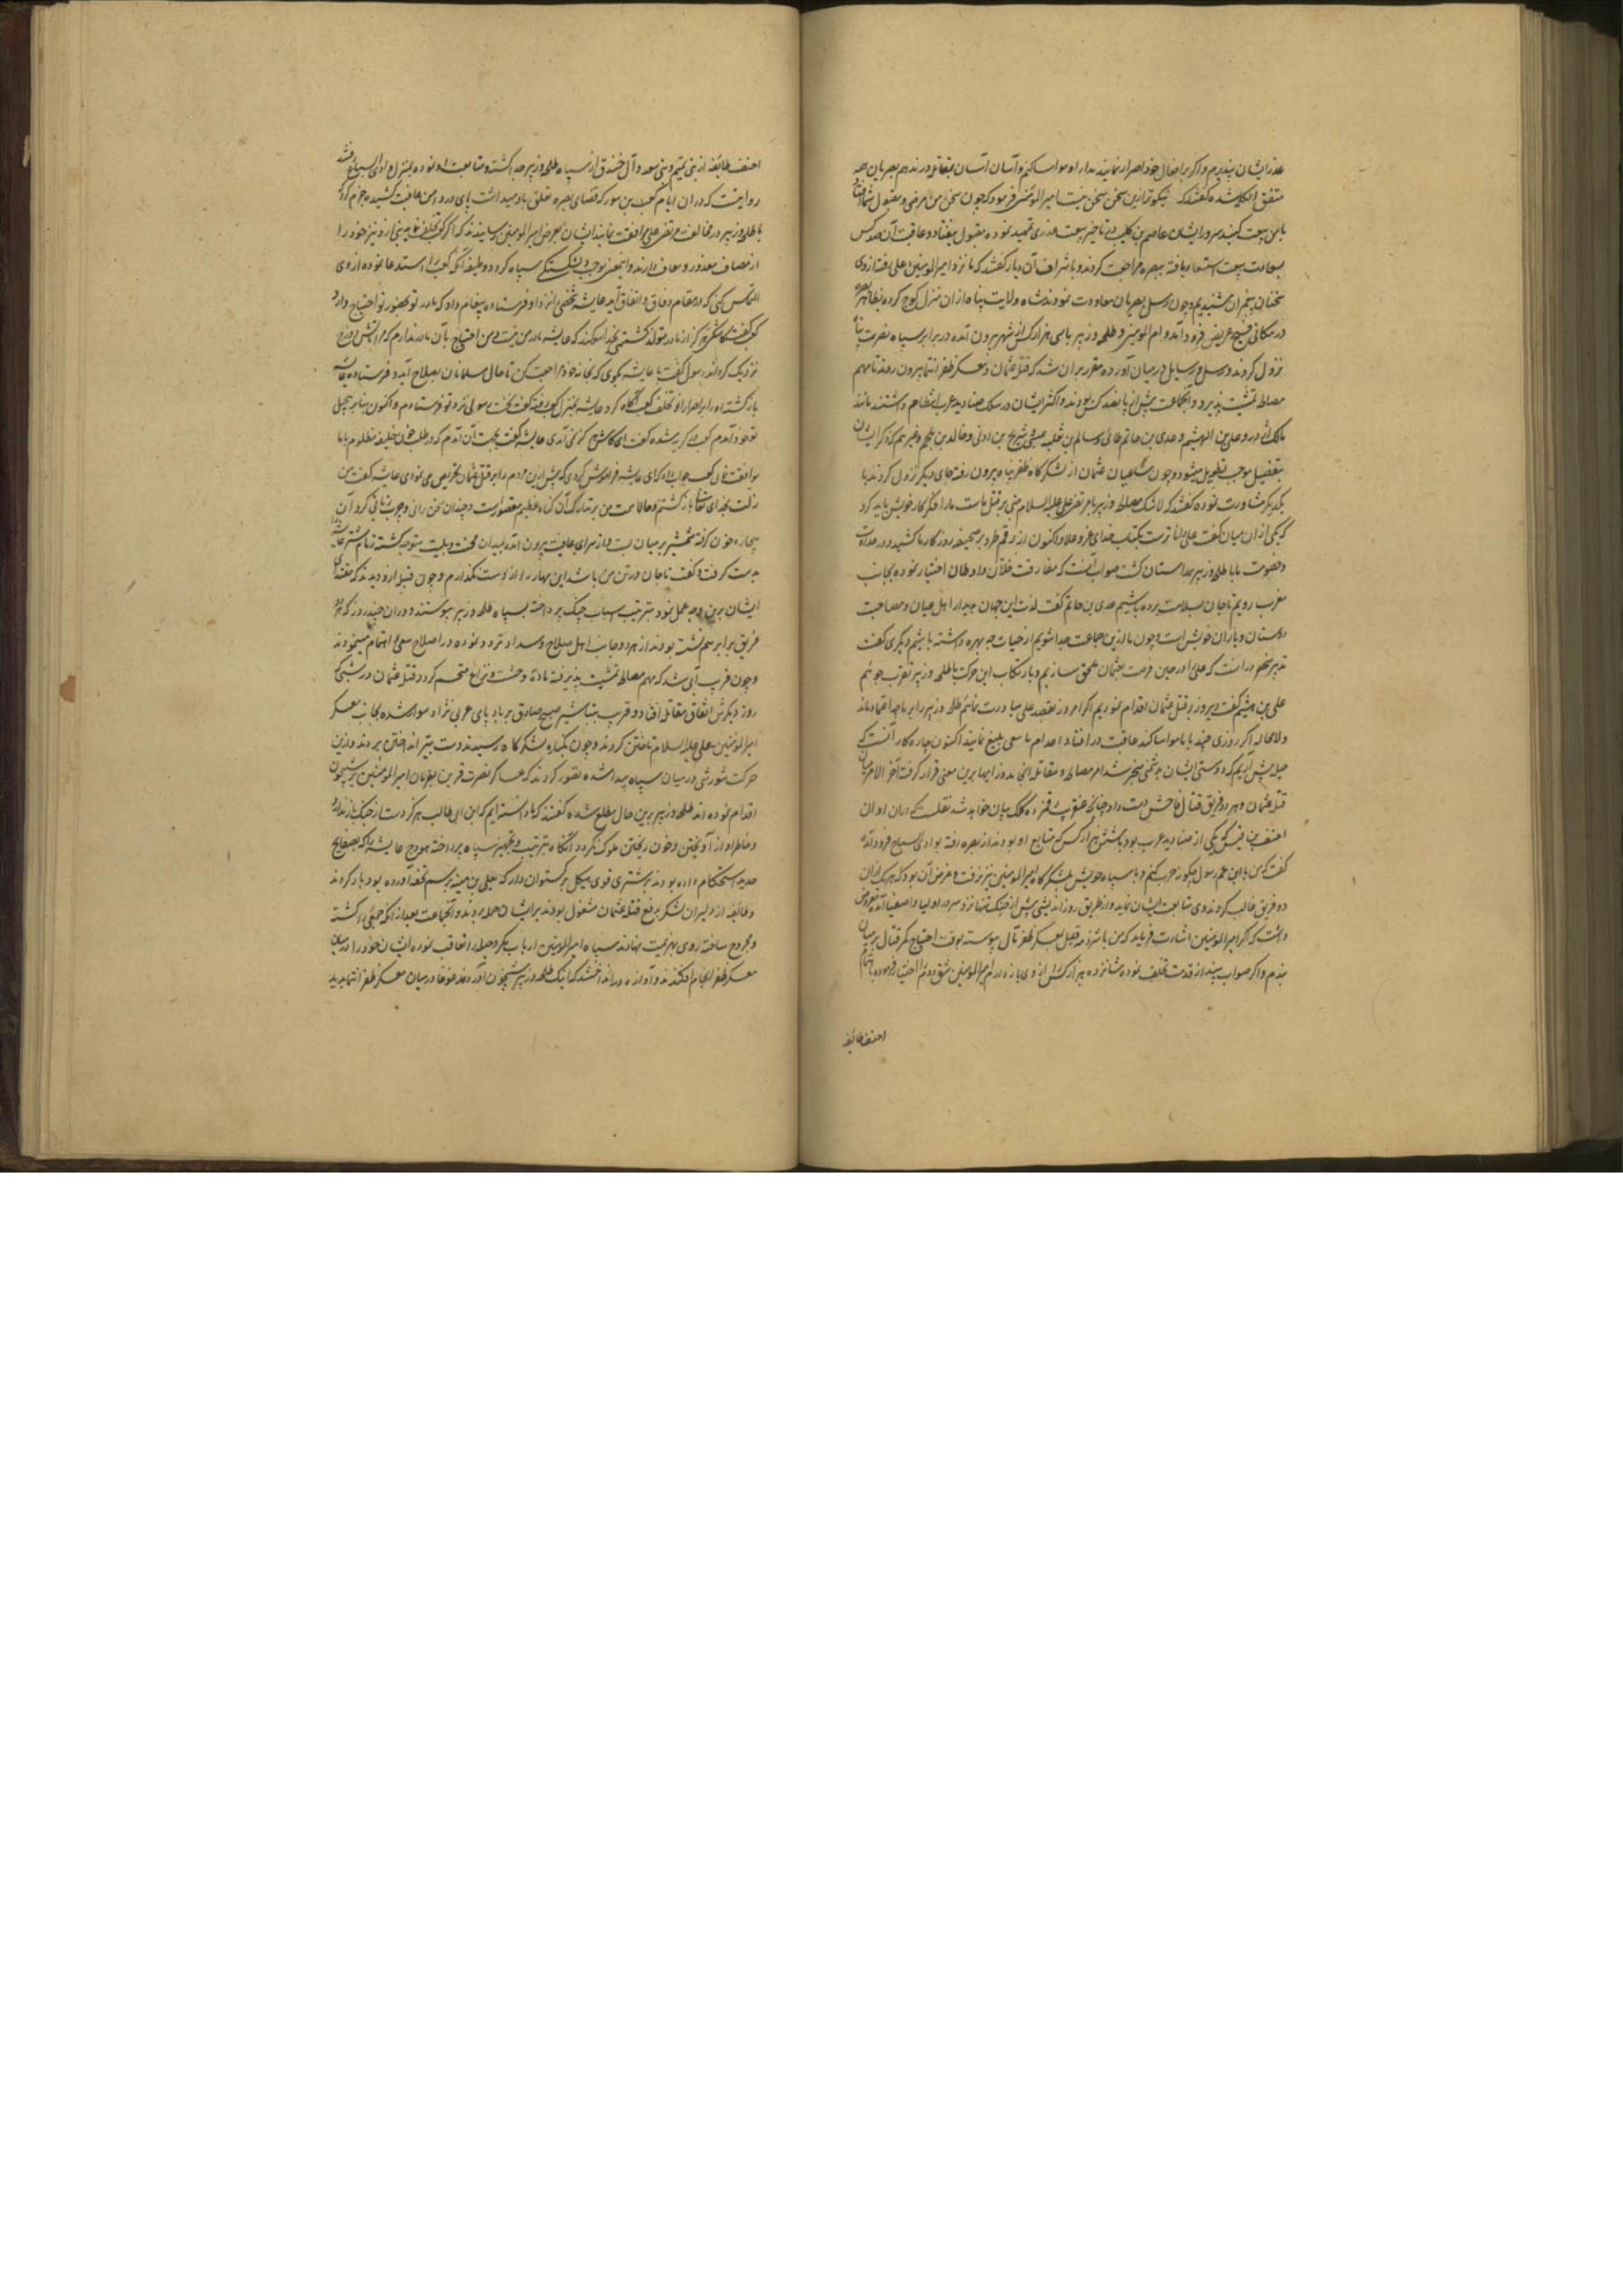 عذر ایشان بپذیرم و اگر بر افعال خود اصرار نمایند بدارا و مواسا کنیم و آسان آسان بمقاتله در ندهم بصریان همه
متفق الکلمه شده گفتند که نیکوتر ازین سخن سخن نیست امیر المؤمنین فرمود که چون سخن من مرضی و مقبول شما افتاد
با من بیعت کنید سرور ایشان عاصم بن کلیب در تاخیر بیعت عذری تمهید نموده مقبول نیفتاد و عاقبت آن
بسعادت بیعت استسعاد یافته ببصره مراجعت کردند و با اشراف آن دیار گفتند که ما نزد امیر المؤمنین علی رفته از وی
سخنان شنیدیم و چون رسل بصریان معاودت نمودند شاه ولایت پناه از ان منزل کوچ کرده بظاهر بصره
در مکانی فسیح عریض فرود آمد و ام المؤمنین و طلحه و زبیر با سی هزار کس از شهر بیرون آمده در برابر سپاه نصرت پناه
نزول کردند و رسل و رسایل در میان آورده مقرر بران شد که قتله عثمان از معسکر ظفر انتما بیرون روند تا مهم
مصالحه تمشیت پذیرد و آنجماعت بیش از پانصد کس بودند و اکثر ایشان در سلک صنادید عرب انتظام داشتند مانند
مالک اشتر و علی بن الهیثم و عدی بن حاتم طائی و سالم بن ثعلبه عبسی و شریح بن اوفی و خالد بن ملجم و غیرهم که ذکر ایشان
بتفصیل موجب تطویل میشود و چون ساعیان عثمان از لشکرگاه ظفر پناه بیرون رفته جای دیگر نزول کردند با
یکدیگر مشاورت نموده گفتند که لا شک مصالحه و زبیر با مرتضی علی علیه السلام مبنی بر قتل ماست ما را فکر کار خویش باید کرد
که یکی از ان میان گفت علی داناترست بکتاب خدای عز و علا و اکنون او رقم طرد بر صحیفه روزگار ما کشید و در عداوت
و خصومت با با طلحه و زبیر همداستان گشت صواب آنست که مفارقت خلان و اوطان اختیار نموده بجانب
مغرب رویم تا جان بسلامت برده باشیم عدی بن حاتم گفت لذت این جهان بدیدار اهل و عیان و مصاحبت
دوستان و یاران خویش است و چون ما ازین جماعت جدا شویم از حیات چه بهره داشته باشیم دیگری گفت
تدبیر منحصر در آنست که علی را در حین فرصت بعثمان ملحق سازیم و بارتکاب این حرکت با طلحه و زبیر تقرب جوئیم
علی بن هیثم گفت دیروز بر قتل عثمان اقدام نمودیم اگر امروز بقصد علی مبادرت نمائیم طلحه و زبیر را بر ما چه اعتماد ماند
و لا محاله اگر روزی چند با ما مواسا کنند عاقبت در افنا و اعدام ما سعی بلیغ نمایند اکنون چاره کار آنست که
حیله پیش آریم که دوستی ایشان بدشمنی منجر شد امر مصالحه و مقاتله انجامد و رایها برین معنی قرار گرفته آخر الامر میان
قتله عثمان و هر دو فریق قتال فاحش دست داد چنانچه عنقریب رقم زده کلک بیان خواهد شد نقلست که دران اوان
احنف بن قیس که یکی از صنادید عرب بود با شش هزار کس که متابع او بودند از بصره رفته بوادی سباع فرود آمد
گفت که من با ابن عم رسول چگونه حرب کنم و با سپاه خویش بلشکرگاه امیر المؤمنین نیز نرفت و غرض آن بود که هر یک از ان
دو فریق غالب گردند وی متابعت ایشان نماید و از طریق دور اندیشی پیش از جنگ تنها نزد سرور اولیا و اصفیا آمده معروض
داشت که اگر امیر المؤمنین اشارت فرماید که من با شرذمه قلیل بمعسکر ظفر مآل پیوسته بوقت احتیاج کمر قتال بر میان
بندم و اگر صواب بیند از خدمت تخلف نموده شانزده هزار کس از وی بازدارم امیر المؤمنین شق دوم را اختیار فرموده
احنف طائفه
احنف طائفه از بنی تمیم و بنی سعد و آل خندق از سپاه طلحه و زبیر جدا گشته و متابعت او نموده بمنزل وادی السباع رفتند
روایتست که دران ایام کعب بن سور که قضای بصره تعلق باو میداشت پای در دامن عافیت کشیده جزم کرد که
با طلحه و زبیر در مخالفت مرتضی علی موافقت ننماید ایشان بعرض ام المؤمنین رسانیدند که اگر کعب تخلف نماید بنی ازد نیز خود را
از مصاف معذور و معاف دارند و اینمعنی موجب شکستگی سپاه گردد وظیفه آنکه کعب را استدعا نموده از وی
التماس کنی که در مقام وفاق و اتفاق آید عایشه شخصی را نزد او فرستاده پیغام داد که مادر تو بحضور تو احتیاج دارد
کعب گفت کاشکی هرگز از مادر متولد نگشتمی بخدا سوگند که عایشه مادر من نیست و من احتیاج بآن مادر ندارم که مرا بآتش دوزخ
نزدیک گرداند رسول گفت با عایشه بگوی که بخانه خود مراجعت کن تا حال مسلمانان بصلاح آید و فرستاده عایشه
بازگشته او را بر اصرار او تخلف کعب آگاه کرد عایشه بمنزل کعب رفته گفت نخست رسولی نزد تو فرستادم و اکنون بنا بر تبجیل
تو خود آمدم کعب در گریه شده گفت ای کاشکی که نمی آمدی عایشه گفت بجهت آن آمدم که در طلب خون خلیفه مظلوم با ما
موافقت نمائی کعب جواب داد که ای عایشه فراموش کردی که پیش ازین مردم را بر قتل عثمان تحریص می نمودی عایشه گفت من
زلت بخدای تعالی بازگشتم و حالا همت من بر تدارک آن گناه عظیم مقصورست و چندان سخن رانی و چرب زبانی کرد آن
بیچاره خون گرفته شمشیر بر میان بست و از سرای عافیت بیرون آمده بمیدان محنت و بلیت متوجه گشته زمام شتر عایشه
بدست گرفت و گفت تا جان در تن من باشد این مهار را از دست نگذارم و چون قبیله ازد دیدند که مقتدای
ایشان برین وجه عمل نمود بترتیب اسباب جنگ پرداخته بسپاه طلحه و زبیر پیوستند و دران چند روز که هر دو
فریق برابر هم نشسته بودند از هر دو جانب اهل صلاح و سداد تردد نموده در اصلاح سعی و اهتمام مینمودند
و چون قریب آن شد که مهم مصالحه تمشیت پذیرفته ماده وحشت و نزاع منحسم گردد قتله عثمان در شبی که
روز دیگرش اتفاق مقاتله افتاد و قریب بتباشیر صبح صادق بر باد پای عربی نژاد سوار شده بجانب معسکر
امیر المؤمنین علی علیه السلام تاختن کردند و چون بکناره لشکرگاه رسیدند دست بتیر انداختن بردند و ازین
حرکت شورشی در میان سپاه پیدا شده تصور کردند که عساکر نصرت قرین بفرمان امیر المؤمنین بر شبیخون
اقدام نموده اند طلحه و زبیر برین حال مطلع شده گفتند که ما دانسته ایم که ابن ابی طالب هرگز دست از جنگ باز ندارد
و خاطر او از آویختن و خون ریختن ملوک نگردد آنگاه بترتیب و تجهیز سپاه پرداخته هودج عایشه را که بصفایح
حدید استحکام داده بودند بر شتری قوی هیکل برگستوان دار که یعلی بن منیه برسم تحفه آورده بود بار کردند
و طائفه از دلیران لشکر بدفع قتله عثمان مشغول بودند بر ایشان حمله بردند و آنجماعت بعد از آنکه جمعی را کشته
و مجروح ساخته روی بهزیمت نهادند سپاه امیر المؤمنین ارباب مکر و حیله را تعاقب نموده ایشان خود را در میان
معسکر ظفر انجام افکندند و آوازه در انداختند که اینک طلحه و زبیر شبیخون آوردند غوغا در میان معسکر ظفر انتما پدید